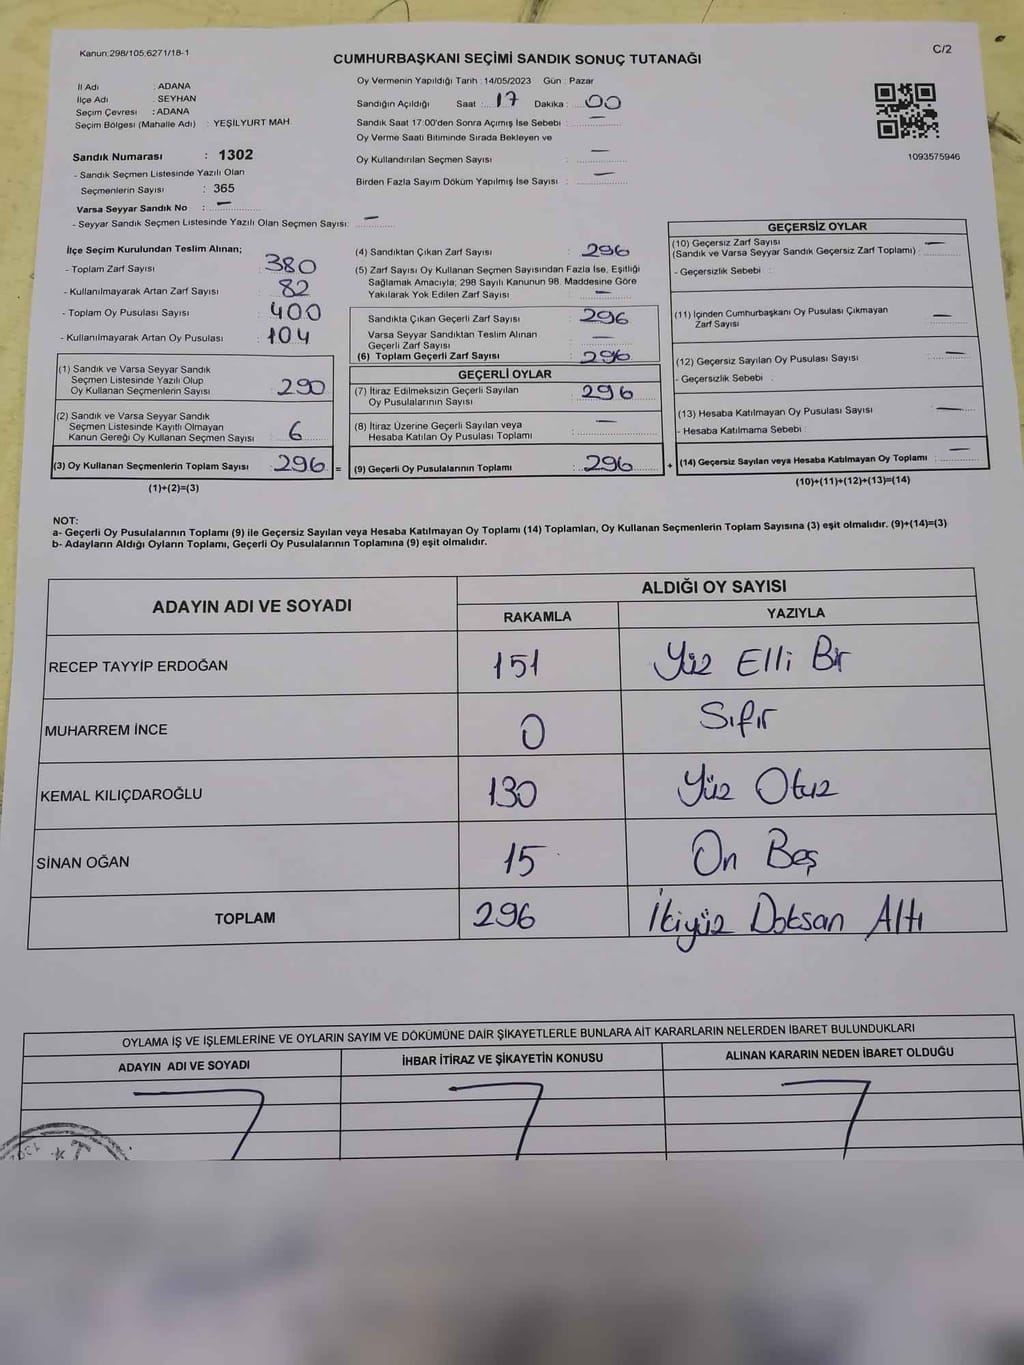 Kanun:298/105,6271/18-1
C/2
CUMHURBAŞKANI SEÇİMİ SANDIK SONUÇ TUTANAĞI
İl Adı : ADANA
İlçe Adı : SEYHAN
Seçim Çevresi : ADANA
Seçim Bölgesi (Mahalle Adı) : YEŞİLYURT MAH.
Sandık Numarası : 1302
- Sandık Seçmen Listesinde Yazılı Olan
Seçmenlerin Sayısı : 365
Varsa Seyyar Sandık No : —
- Seyyar Sandık Seçmen Listesinde Yazılı Olan Seçmen Sayısı: —
Oy Vermenin Yapıldığı Tarih : 14/05/2023 Gün : Pazar
Sandığın Açıldığı Saat : 17 Dakika : 00
Sandık Saat 17:00'den Sonra Açımış İse Sebebi : —
Oy Verme Saati Bitiminde Sırada Bekleyen ve
Oy Kullandırılan Seçmen Sayısı : —
Birden Fazla Sayım Döküm Yapılmış İse Sayısı : —
1093575946
İlçe Seçim Kurulundan Teslim Alınan;
- Toplam Zarf Sayısı : 380
- Kullanılmayarak Artan Zarf Sayısı : 82
- Toplam Oy Pusulası Sayısı : 400
- Kullanılmayarak Artan Oy Pusulası : 104
(1) Sandık ve Varsa Seyyar Sandık
Seçmen Listesinde Yazılı Olup
Oy Kullanan Seçmenlerin Sayısı : 290
(2) Sandık ve Varsa Seyyar Sandık
Seçmen Listesinde Kayıtlı Olmayan
Kanun Gereği Oy Kullanan Seçmen Sayısı : 6
(3) Oy Kullanan Seçmenlerin Toplam Sayısı : 296 =
(1)+(2)=(3)
(4) Sandıktan Çıkan Zarf Sayısı : 296
(5) Zarf Sayısı Oy Kullanan Seçmen Sayısından Fazla İse, Eşitliği
Sağlamak Amacıyla; 298 Sayılı Kanunun 98. Maddesine Göre
Yakılarak Yok Edilen Zarf Sayısı : —
Sandıkta Çıkan Geçerli Zarf Sayısı : 296
Varsa Seyyar Sandıktan Teslim Alınan
Geçerli Zarf Sayısı : —
(6) Toplam Geçerli Zarf Sayısı : 296
GEÇERLİ OYLAR
(7) İtiraz Edilmeksizin Geçerli Sayılan
Oy Pusulalarının Sayısı : 296
(8) İtiraz Üzerine Geçerli Sayılan veya
Hesaba Katılan Oy Pusulası Toplamı : —
(9) Geçerli Oy Pusulalarının Toplamı : 296 +
GEÇERSİZ OYLAR
(10) Geçersiz Zarf Sayısı
(Sandık ve Varsa Seyyar Sandık Geçersiz Zarf Toplamı) : —
- Geçersizlik Sebebi :
(11) İçinden Cumhurbaşkanı Oy Pusulası Çıkmayan
Zarf Sayısı : —
(12) Geçersiz Sayılan Oy Pusulası Sayısı : —
- Geçersizlik Sebebi :
(13) Hesaba Katılmayan Oy Pusulası Sayısı : —
- Hesaba Katılmama Sebebi :
(14) Geçersiz Sayılan veya Hesaba Katılmayan Oy Toplamı : —
(10)+(11)+(12)+(13)=(14)
NOT:
a- Geçerli Oy Pusulalarının Toplamı (9) ile Geçersiz Sayılan veya Hesaba Katılmayan Oy Toplamı (14) Toplamları, Oy Kullanan Seçmenlerin Toplam Sayısına (3) eşit olmalıdır. (9)+(14)=(3)
b- Adayların Aldığı Oyların Toplamı, Geçerli Oy Pusulalarının Toplamına (9) eşit olmalıdır.
ADAYIN ADI VE SOYADI
ALDIĞI OY SAYISI
RAKAMLA YAZIYLA
RECEP TAYYİP ERDOĞAN 151 Yüz Elli Bir
MUHARREM İNCE 0 Sıfır
KEMAL KILIÇDAROĞLU 130 Yüz Otuz
SİNAN OĞAN 15 On Beş
TOPLAM 296 İkiyüz Doksan Altı
OYLAMA İŞ VE İŞLEMLERİNE VE OYLARIN SAYIM VE DÖKÜMÜNE DAİR ŞİKAYETLERLE BUNLARA AİT KARARLARIN NELERDEN İBARET BULUNDUKLARI
ADAYIN ADI VE SOYADI İHBAR İTİRAZ VE ŞİKAYETİN KONUSU ALINAN KARARIN NEDEN İBARET OLDUĞU